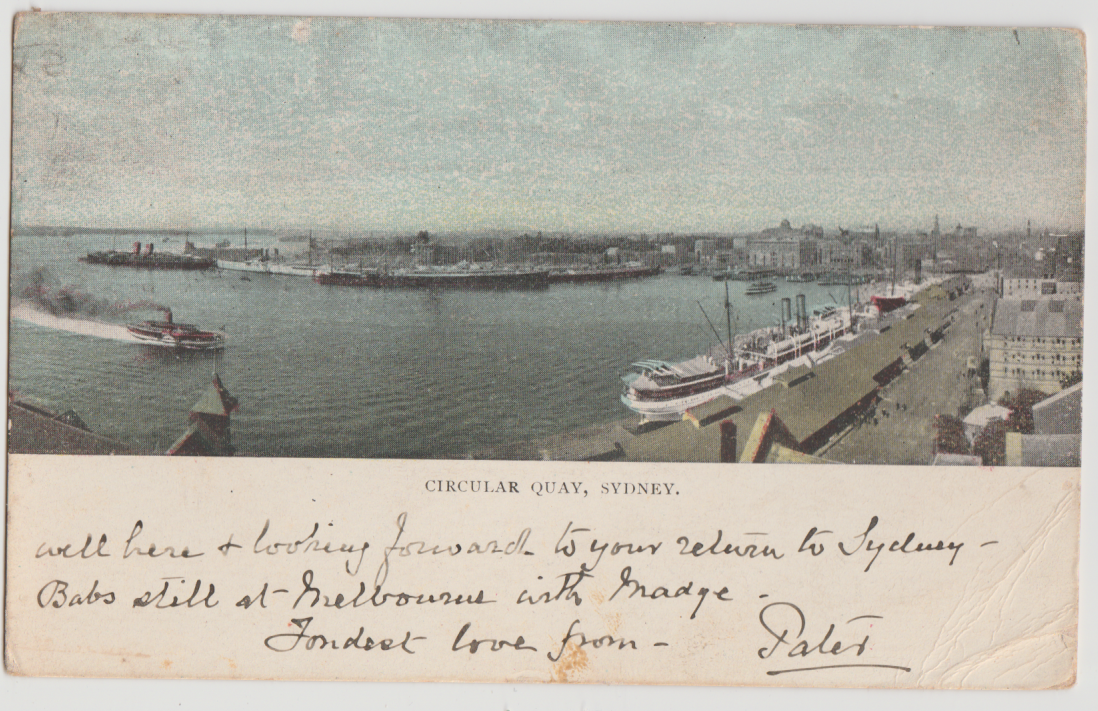 CIRCULAR QUAY, SYDNEY.
well here & looking forward to your return to Sydney –
Babs still at Melbourne with Madge –
Fondest love from –
Pater